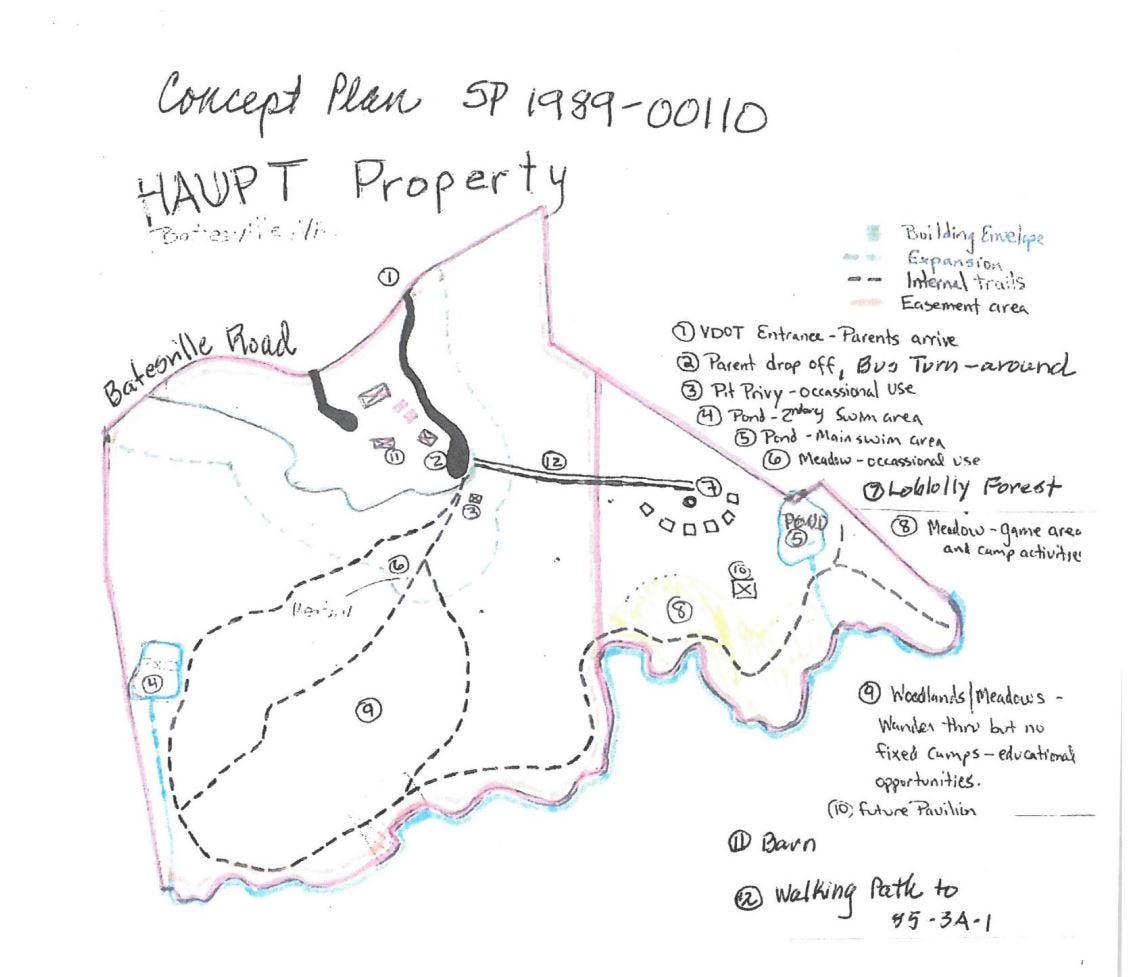 Concept Plan SP 1989-00110
HAUPT Property
Building Envelope
Expansion
Internal trails
Easement area
① VDOT Entrance - Parents arrive
② Parent drop off, Bus Turn-around
③ Pit Privy - occassional use
④ Pond - 2ndary Swim area
⑤ Pond - Main swim area
⑥ Meadow - occassional use
⑦ Loblolly Forest
⑧ Meadow - game area
and camp activities
⑨ Woodlands/Meadows -
Wander thru but no
fixed camps - educational
opportunities.
(10) future Pavilion
⑪ Barn
⑫ Walking Path to
85-3A-1
Batesville Road
①
②
③
④
Pond
⑤
⑥
⑦
⑧
⑨
⑩
⑪
⑫